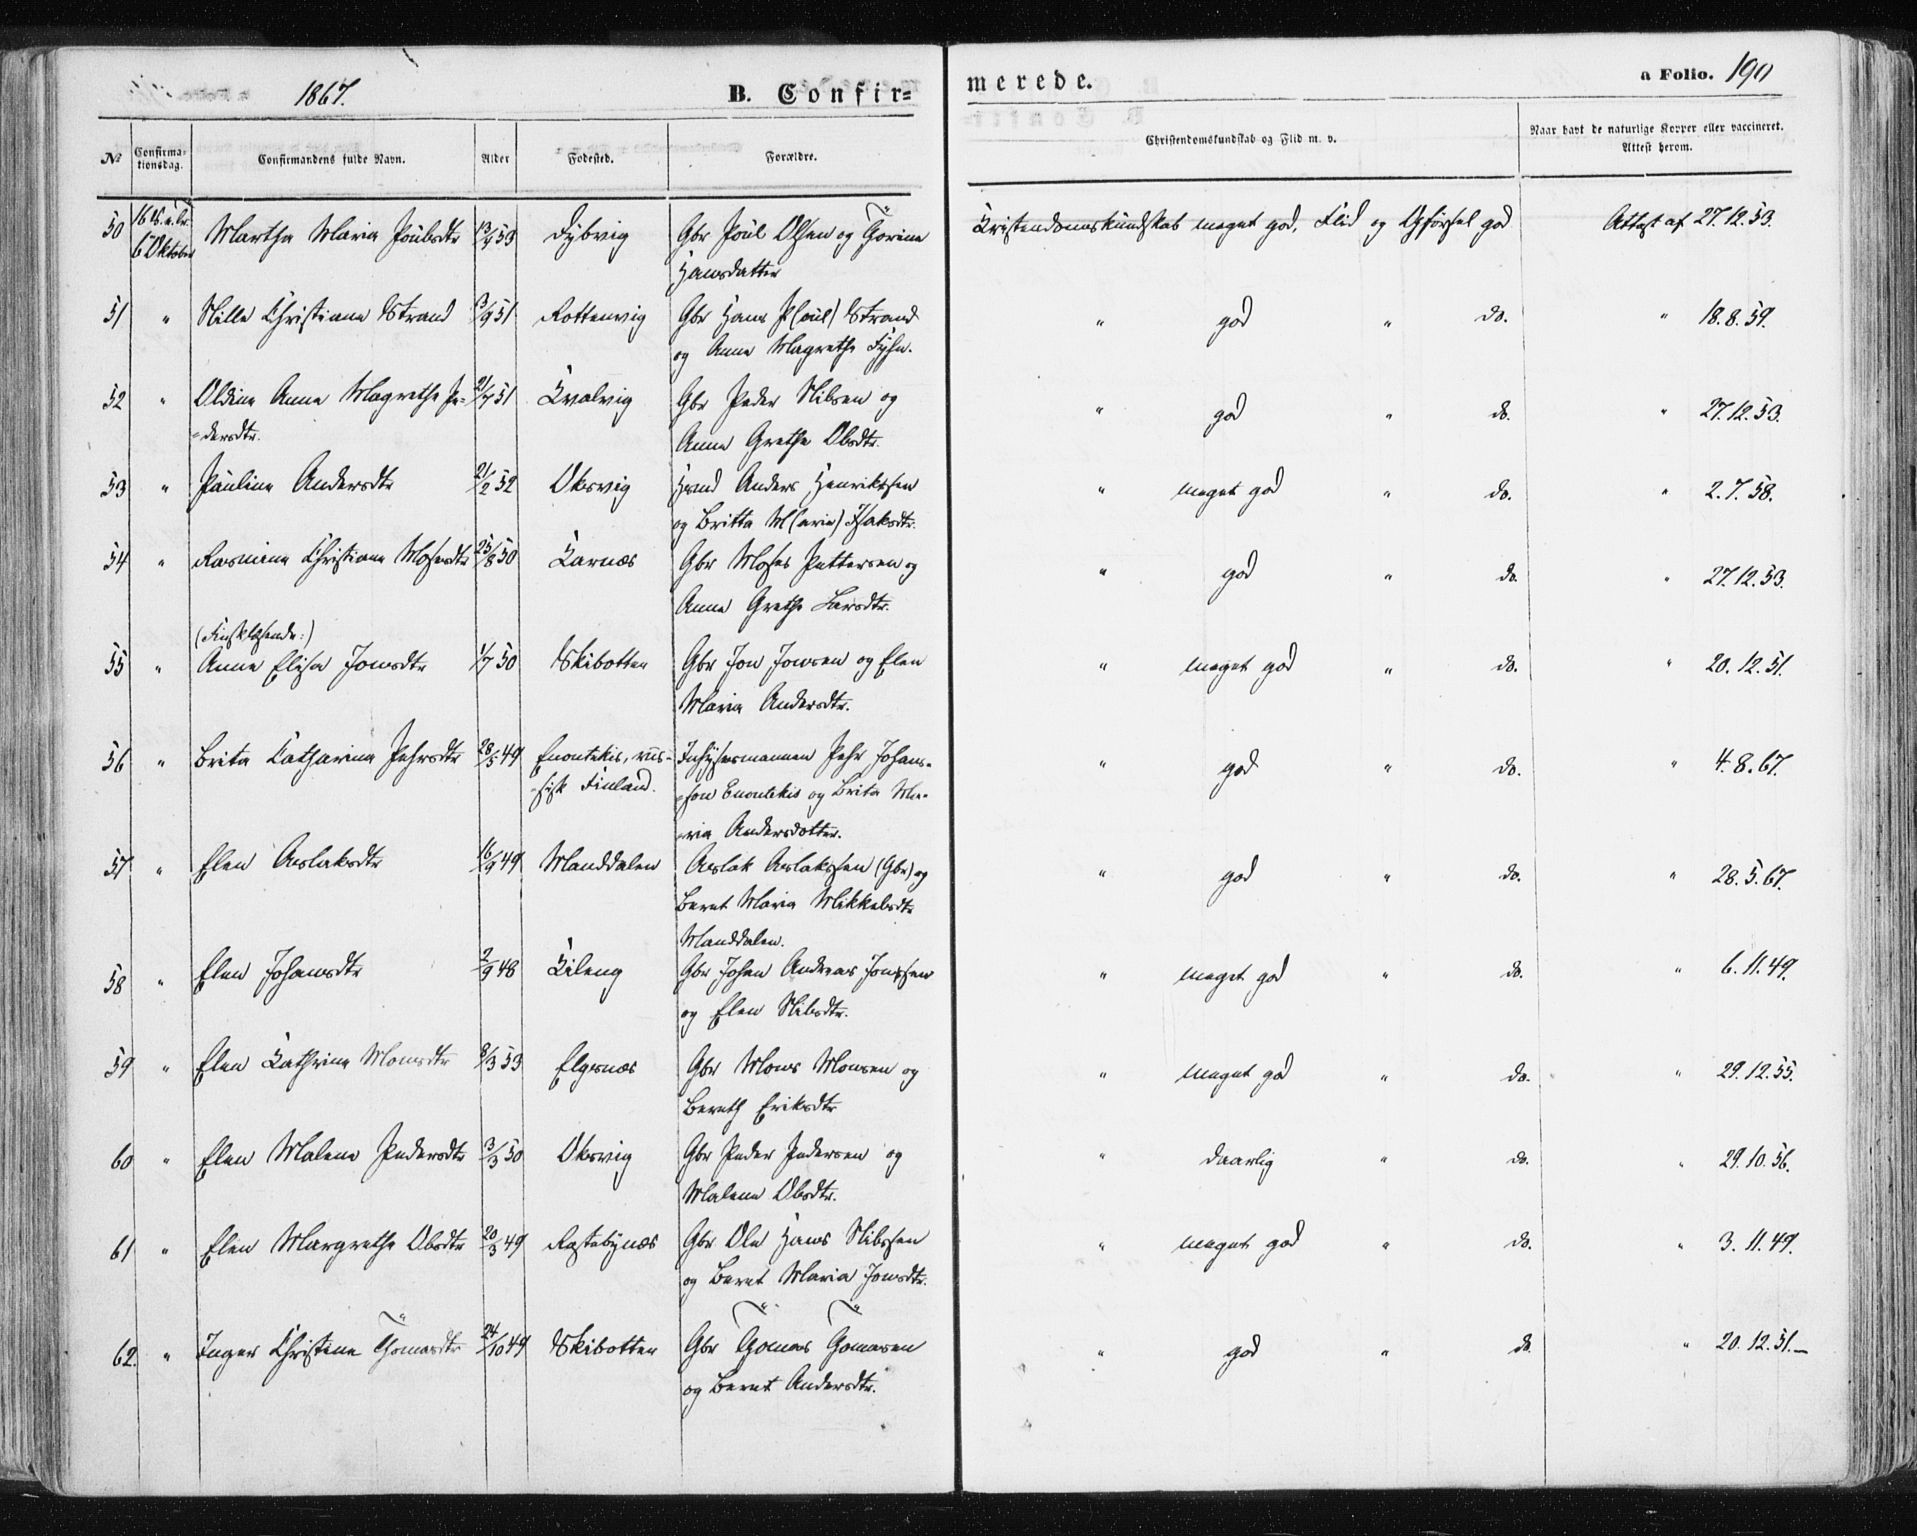 1867. B. Confir= merede. a Folio. 190
№ Confirma=tionsdag. Confirmandens fulde Navn. Alder Fodested. Forældre. Christendomskundskab og Flid m. v. Naar havt de naturlige Kopper eller vaccineret. Attest herom.
50 16 S. e. Tr. 6 Oktober Martha Maria Poulsdtr 13/4 53 Dybvig Gbr Poul Olsen og Gorina Christendomskundskab meget god, Flid og Opførsel god Attest af 27.12.53.
Hansdatter
51 " Nille Christiane Strand 3/9 51 Rottenvig Gbr Hans P(oul) Strand " god " do. " 18.8.59.
og Anne Magrethe Fyhn.
52 " Oldine Anna Magrethe Pe= 21/7 51 Kvalvig Gbr Peder Nilsen og " god " do. " 27.12.53.
=dersdtr. Anne Grethe Olsdtr.
53 " Pauline Andersdtr 21/2 52 Oksvig Hmd Anders Henriksen " meget god " do. " 2.7.58.
og Britta M(aria) Isaksdtr.
54 " Rasmine Christiane Mosesdtr 25/8 50 Karnæs Gbr Moses Pettersen og " god " do. " 27.12.53.
Anne Grethe Larsdtr.
(Finsklæsende:)
55 " Anne Elisa Jonsdtr 1/7 50 Skibotten Gbr Jon Jonsen og Elen " meget god " do. " 20.12.51.
Maria Andersdtr.
56 " Brita Catharina Pehrsdtr 28/5 49 Enontekis, rus= Inhysesmannen Pehr Johans= " god " do. " 4.8.67.
=sisk Finland. =son Enontekis og Brita Ma=
=ria Andersdotter.
57 " Elen Aslaksdtr 16/9 49 Manddalen Aslak Aslaksen (Gbr) og " god " do. " 28.5.67.
Beret Maria Mikkelsdtr
Manddalen.
58 " Elen Johansdtr 2/9 48 Kileng Gbr Johan Andreas Jonssen " meget god " do. " 6.11.49.
og Elen Nilsdtr.
59 " Elen Kathrine Monsdtr 8/3 53 Elgsnæs Gbr Mons Monsen og " meget god " do. " 29.12.55.
Bereth Eriksdtr
60 " Elen Malene Pedersdtr 3/3 50 Oksvig Gbr Peder Pedersen og " daarlig " do. " 29.10.56.
Malene Olsdtr.
61 " Elen Margrethe Olsdtr 20/3 49 Rastebynæs Gbr Ole Hans Nilssen " meget god " do. " 3.11.49.
og Beret Maria Jonsdtr.
62. " Inger Christine Tomasdtr 24/10 49 Skibotten Gbr Tomas Tomasen " god " do. " 20.12.51.—
og Beret Andersdtr.